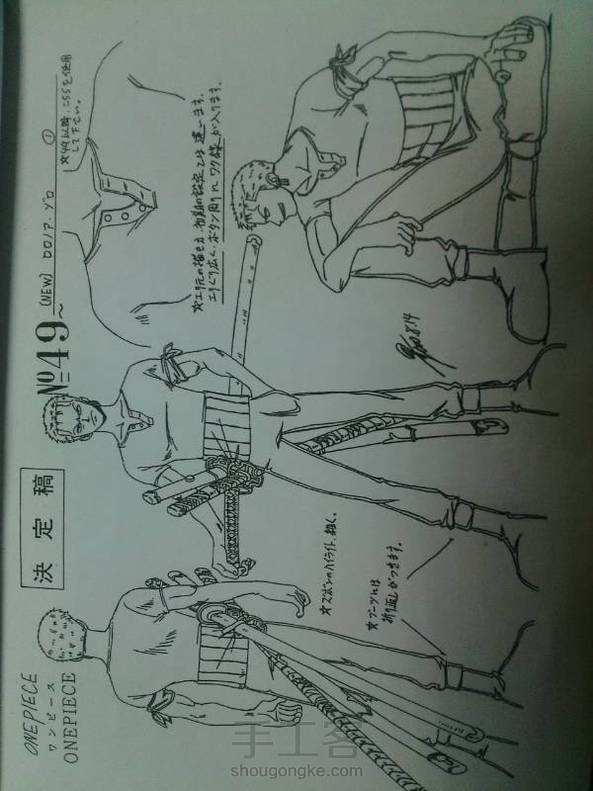 ONEPIECE
ワンピース
ONEPIECE
決定稿
№49～
(NEW) ロロノア・ゾロ
①
☆49以降、こちらを使用
して下さい。
☆エリ元の描き方、初期の設定とは違います。
エリぐり広く、ボタン周りにワク線が入ります。
☆ズボンのハイライト、細く。
☆ブーツには
折り返しがつきます。
8.14
手工客
shougongke.com